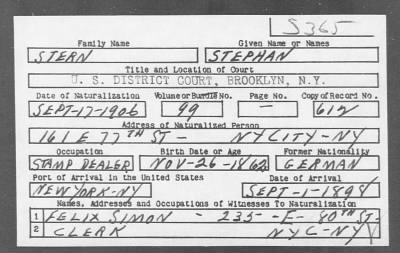 S365
Family Name Given Name or Names
STERN STEPHAN
Title and Location of Court
U. S. DISTRICT COURT, BROOKLYN, N.Y.
Date of Naturalization Volume or Bundle No. Page No. Copy of Record No.
SEPT-17-1906 99 — 612
Address of Naturalized Person
161 E 77TH ST - NYCITY-NY
Occupation Birth Date or Age Former Nationality
STAMP DEALER NOV-26-1862 GERMAN
Port of Arrival in the United States Date of Arrival
NEW YORK-NY SEPT-1-1898
Names, Addresses and Occupations of Witnesses To Naturalization
1 FELIX SIMON - 235 -E- 80TH ST-
2 CLERK NYC-NY